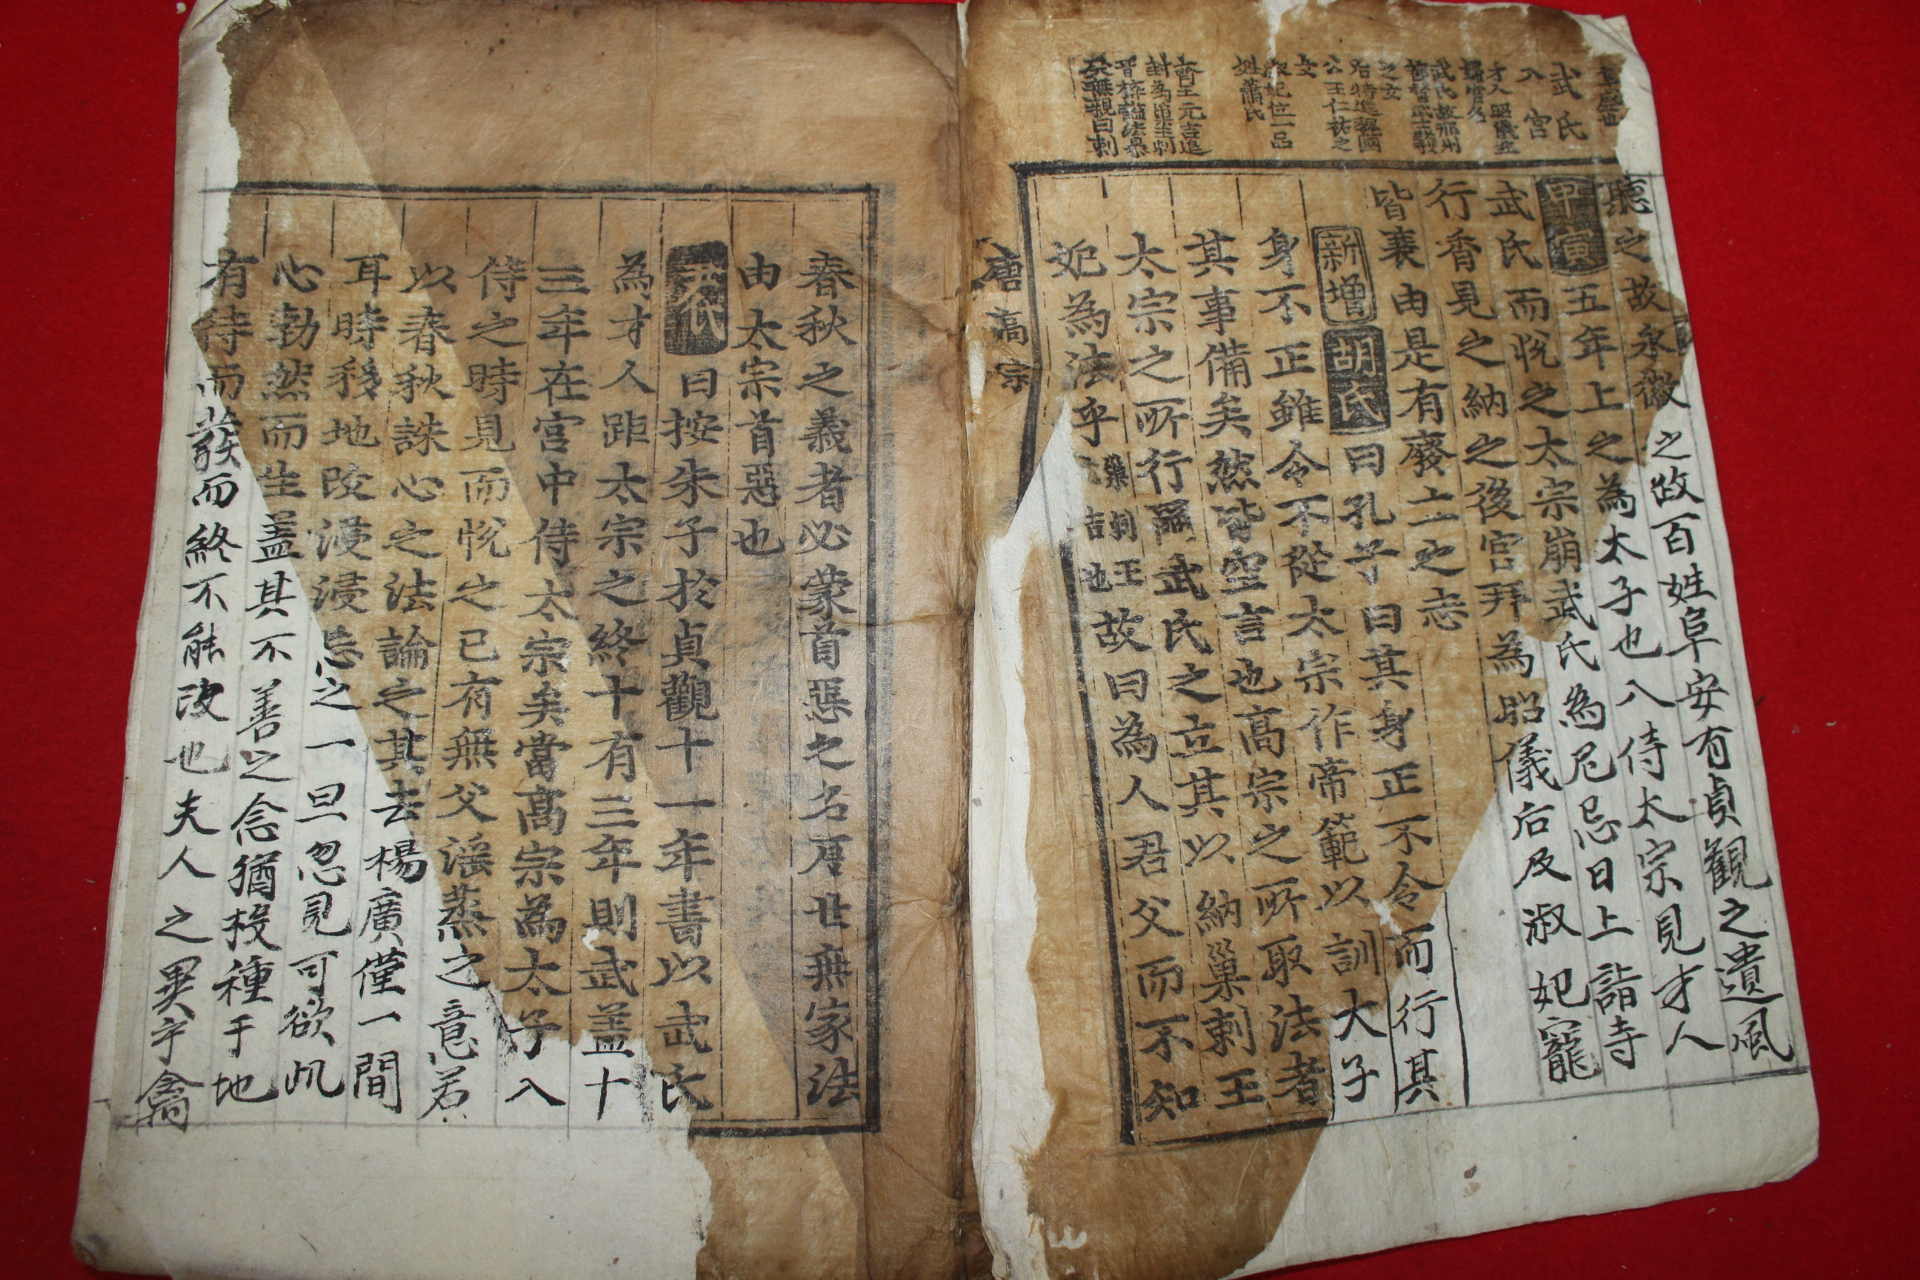 武氏
入宮
才人昭儀並
婦官名
之女
公王仁祐之
女
淑妃位一品
姓蕭氏
齊王元吉追
封為巢王剌
聽之故永徽之政百姓阜安有貞觀之遺風
甲寅五年上之為太子也入侍太宗見才人
武氏而悅之太宗崩武氏為尼忌日上詣寺
行香見之納之後宮拜為昭儀后及淑妃寵
皆衰由是有廢立之志
新增胡氏曰孔子曰其身正不令而行其
身不正雖令不從太宗作帝範以訓大子
其事備矣然皆空言也高宗之所取法者
太宗之所行爾武氏之立其以納巢剌王
妃為法乎巢剌王元吉也故曰為人君父而不知
唐高宗
春秋之義者必蒙首惡之名唐世無家法
由太宗首惡也
尹氏曰按朱子於貞觀十一年書以武氏
為才人距太宗之終十有三年則武盖十
三年在宮中侍太宗矣當高宗為太子入
侍之時見而悅之已有無父滛蒸之意若
以春秋誅心之法論之其去楊廣僅一間
耳時移地改浸浸忘之一旦忽見可欲㐫
心勃然而生盖其不善之念猶投種于地
有待而發而終不能改也夫人之異乎禽